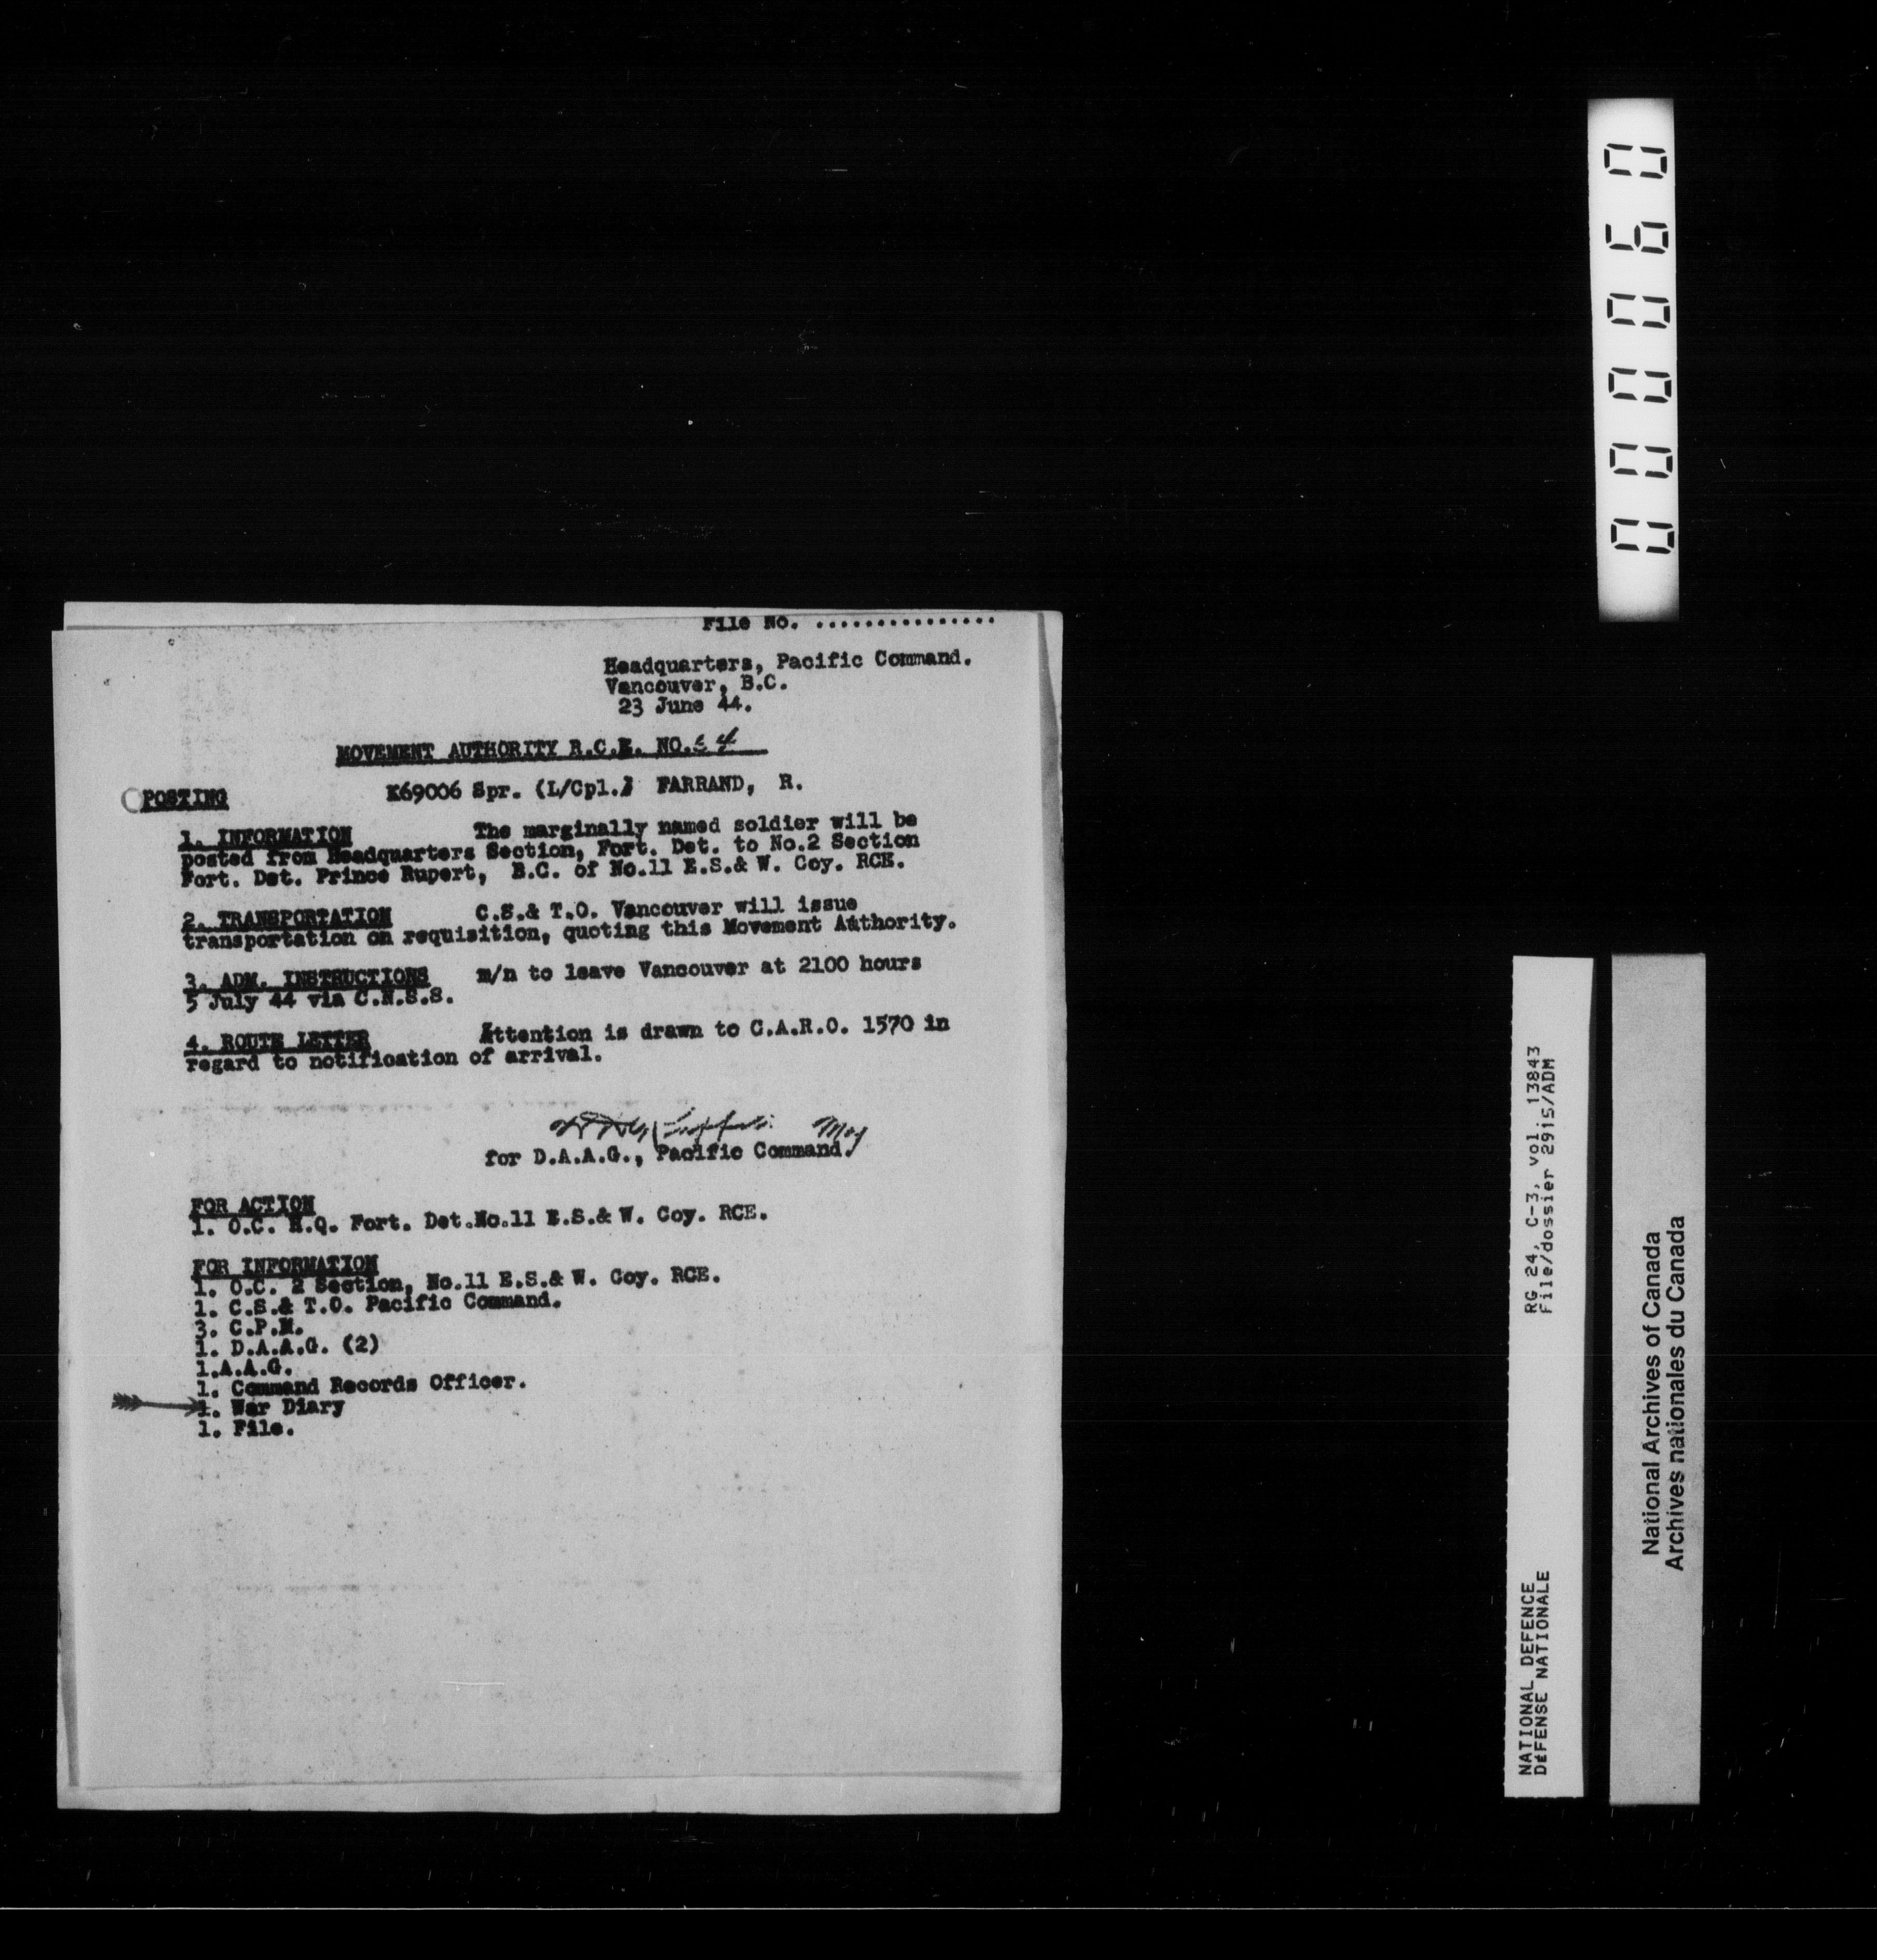 File No. ...............
Headquarters, Pacific Command.
Vancouver, B.C.
23 June 44.
MOVEMENT AUTHORITY R.C.E. NO.
POSTING K69006 Spr. (L/Cpl.) FARRAND, R.
1. INFORMATION The marginally named soldier will be
posted from Headquarters Section, Fort. Det. to No.2 Section
Fort. Det. Prince Rupert, B.C. of No.11 E.S.& W. Coy. RCE.
2. TRANSPORTATION C.S.& T.O. Vancouver will issue
transportation on requisition, quoting this Movement Authority.
3. ADM. INSTRUCTIONS m/n to leave Vancouver at 2100 hours
5 July 44 via C.N.S.S.
4. ROUTE LETTER Attention is drawn to C.A.R.O. 1570 in
regard to notification of arrival.
Maj
for D.A.A.G., Pacific Command.
FOR ACTION
1. O.C. H.Q. Fort. Det.No.11 E.S.& W. Coy. RCE.
FOR INFORMATION
1. O.C. 2 Section, No.11 E.S.& W. Coy. RCE.
1. C.S.& T.O. Pacific Command.
3. C.P.M.
1. D.A.A.G. (2)
1.A.A.G.
1. Command Records Officer.
1. War Diary
1. File.
000060
NATIONAL DEFENCE RG 24, C-3, vol. 13843
DÉFENSE NATIONALE File/dossier 2915/ADM
National Archives of Canada
Archives nationales du Canada